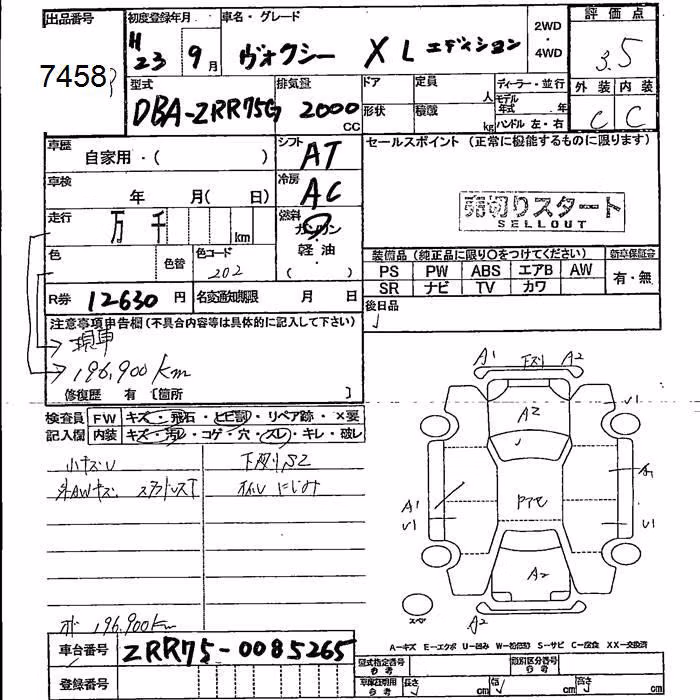 出品番号 初度登録年月 車名・グレード 評価点
7458 H23 9月 ヴォクシー X L エディション 2WD・4WD 3.5
型式 排気量 ドア 定員 人 ディーラー・並行 外装 内装
DBA-ZRR75G 2000 CC 形状 積載 kg モデル年式 年 C C
ハンドル 左・右
車歴 シフト セールスポイント (正常に機能するものに限ります)
自家用・( ) AT
車検 冷房
年 月( 日) AC
売切りスタート
SELLOUT
走行 燃料
万 千 km ガソリン・軽油
色 色替 色コード ( )
202
装備品 (純正品に限り○をつけてください) 新車保証書
PS PW ABS エアB AW 有・無
SR ナビ TV カワ
R券 12630 円 名変通知期限 月 日
後日品
注意事項申告欄 (不具合内容等は具体的に記入して下さい)
現車
196,900 km
修復歴 有 [箇所 ]
A1 下スリ A2
検査員 FW キズ・飛石・ヒビ割・リペア跡・×要
記入欄 内装 キズ・汚レ・コゲ・穴・スレ・キレ・破レ
A2 U1
小キズU 下廻りS2
外AWキズ スタッドレスT オイルにじみ
A1 A1
U1 U1
A2
スペア A2
196,900km
車台番号 ZRR75-0085265
A－キズ E－エクボ U－凹み W－補修跡 S－サビ C－腐食 XX－交換済
型式指定番号 参考 類別区分番号
登録番号
車庫証明用 参考 長さ cm 幅 cm 高さ cm